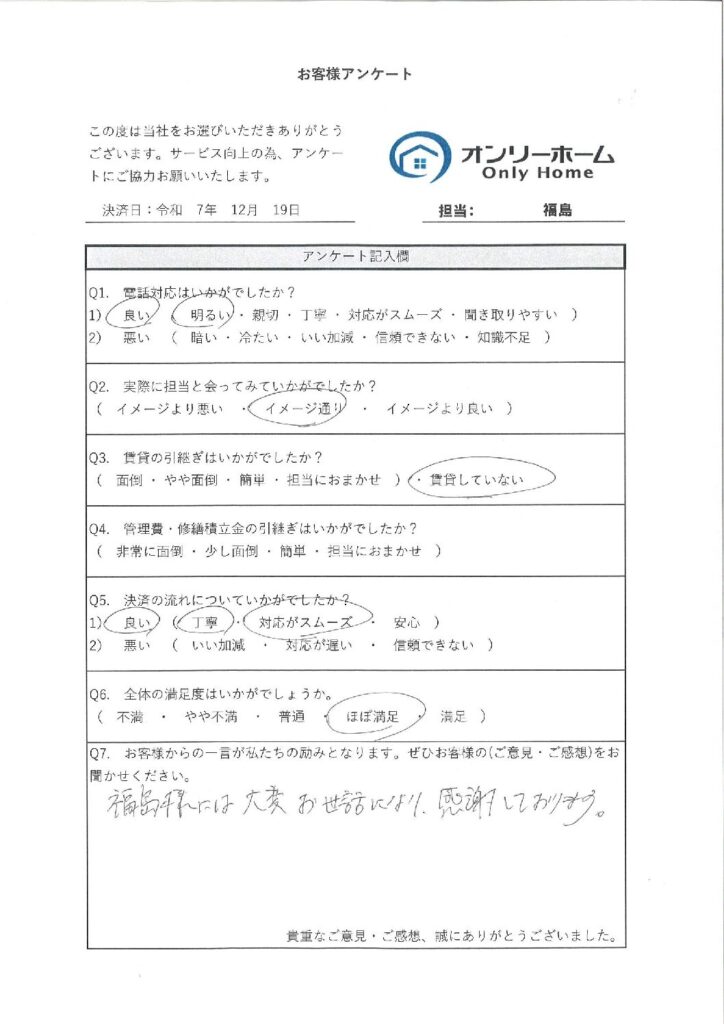 お客様アンケート
この度は当社をお選びいただきありがとう
ございます。サービス向上の為、アンケー
トにご協力お願いいたします。
オンリーホーム
Only Home
決済日：令和　7年　12月　19日
担当：　福島
アンケート記入欄
Q1.　電話対応はいかがでしたか？
1)　良い　（　明るい・親切・丁寧・対応がスムーズ・聞き取りやすい　）
2)　悪い　（　暗い・冷たい・いい加減・信頼できない・知識不足　）
Q2.　実際に担当と会ってみていかがでしたか？
（　イメージより悪い　・　イメージ通り　・　イメージより良い　）
Q3.　賃貸の引継ぎはいかがでしたか？
（　面倒・やや面倒・簡単・担当におまかせ　）・賃貸していない
Q4.　管理費・修繕積立金の引継ぎはいかがでしたか？
（　非常に面倒・少し面倒・簡単・担当におまかせ　）
Q5.　決済の流れについていかがでしたか？
1)　良い　（　丁寧・　対応がスムーズ　・　安心　）
2)　悪い　（　いい加減　・　対応が遅い　・　信頼できない　）
Q6.　全体の満足度はいかがでしょうか。
（　不満　・　やや不満　・　普通　・　ほぼ満足　・　満足　）
Q7.　お客様からの一言が私たちの励みとなります。ぜひお客様の(ご意見・ご感想)をお
聞かせください。
福島様には大変お世話になり、感謝しております。
貴重なご意見・ご感想、誠にありがとうございました。